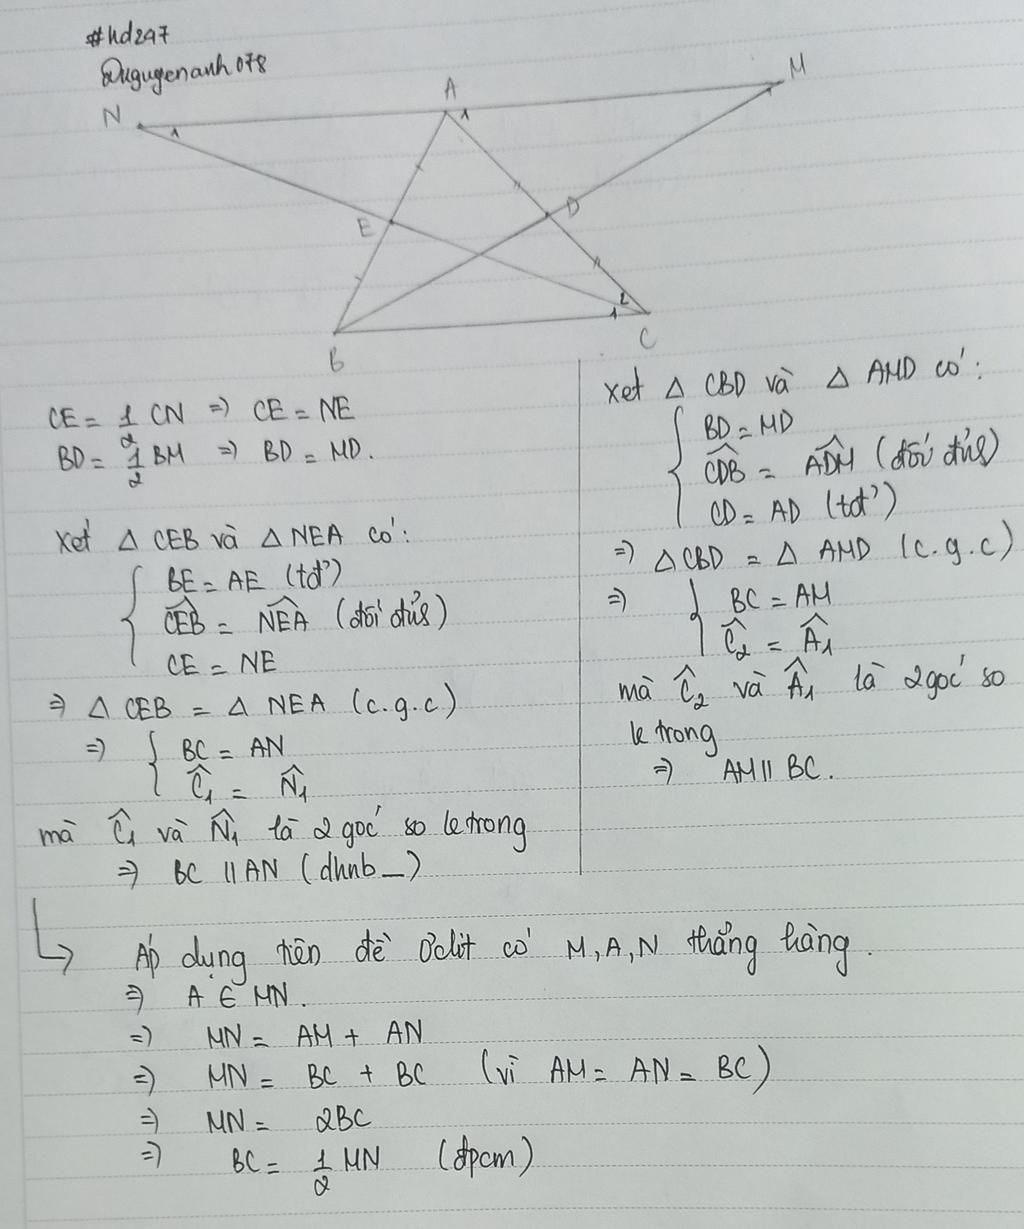 #hd247
@nguyenanh078
N
1
A
1
M
E
D
2
1
B
C
CE = 1/2 CN => CE = NE
BD = 1/2 BM => BD = MD.
Xét △ CEB và △ NEA có:
BE = AE (tđ)
CEB = NEA (đối đỉnh)
CE = NE
=> △ CEB = △ NEA (c.g.c)
=> { BC = AN
Ĉ1 = N̂1
mà Ĉ1 và N̂1 là 2 góc so le trong
=> BC // AN (dhnb_)
Xét △ CBD và △ AMD có:
BD = MD
CDB = ADM (đối đỉnh)
CD = AD (tđ)
=> △CBD = △ AMD (c.g.c)
=> { BC = AM
Ĉ2 = Â1
mà Ĉ2 và Â1 là 2 góc so
le trong
=> AM // BC.
Áp dụng tiên đề Ơclit có M, A, N thẳng hàng.
=> A ∈ MN.
=> MN = AM + AN
=> MN = BC + BC (vì AM = AN = BC)
=> MN = 2BC
=> BC = 1/2 MN (đpcm)